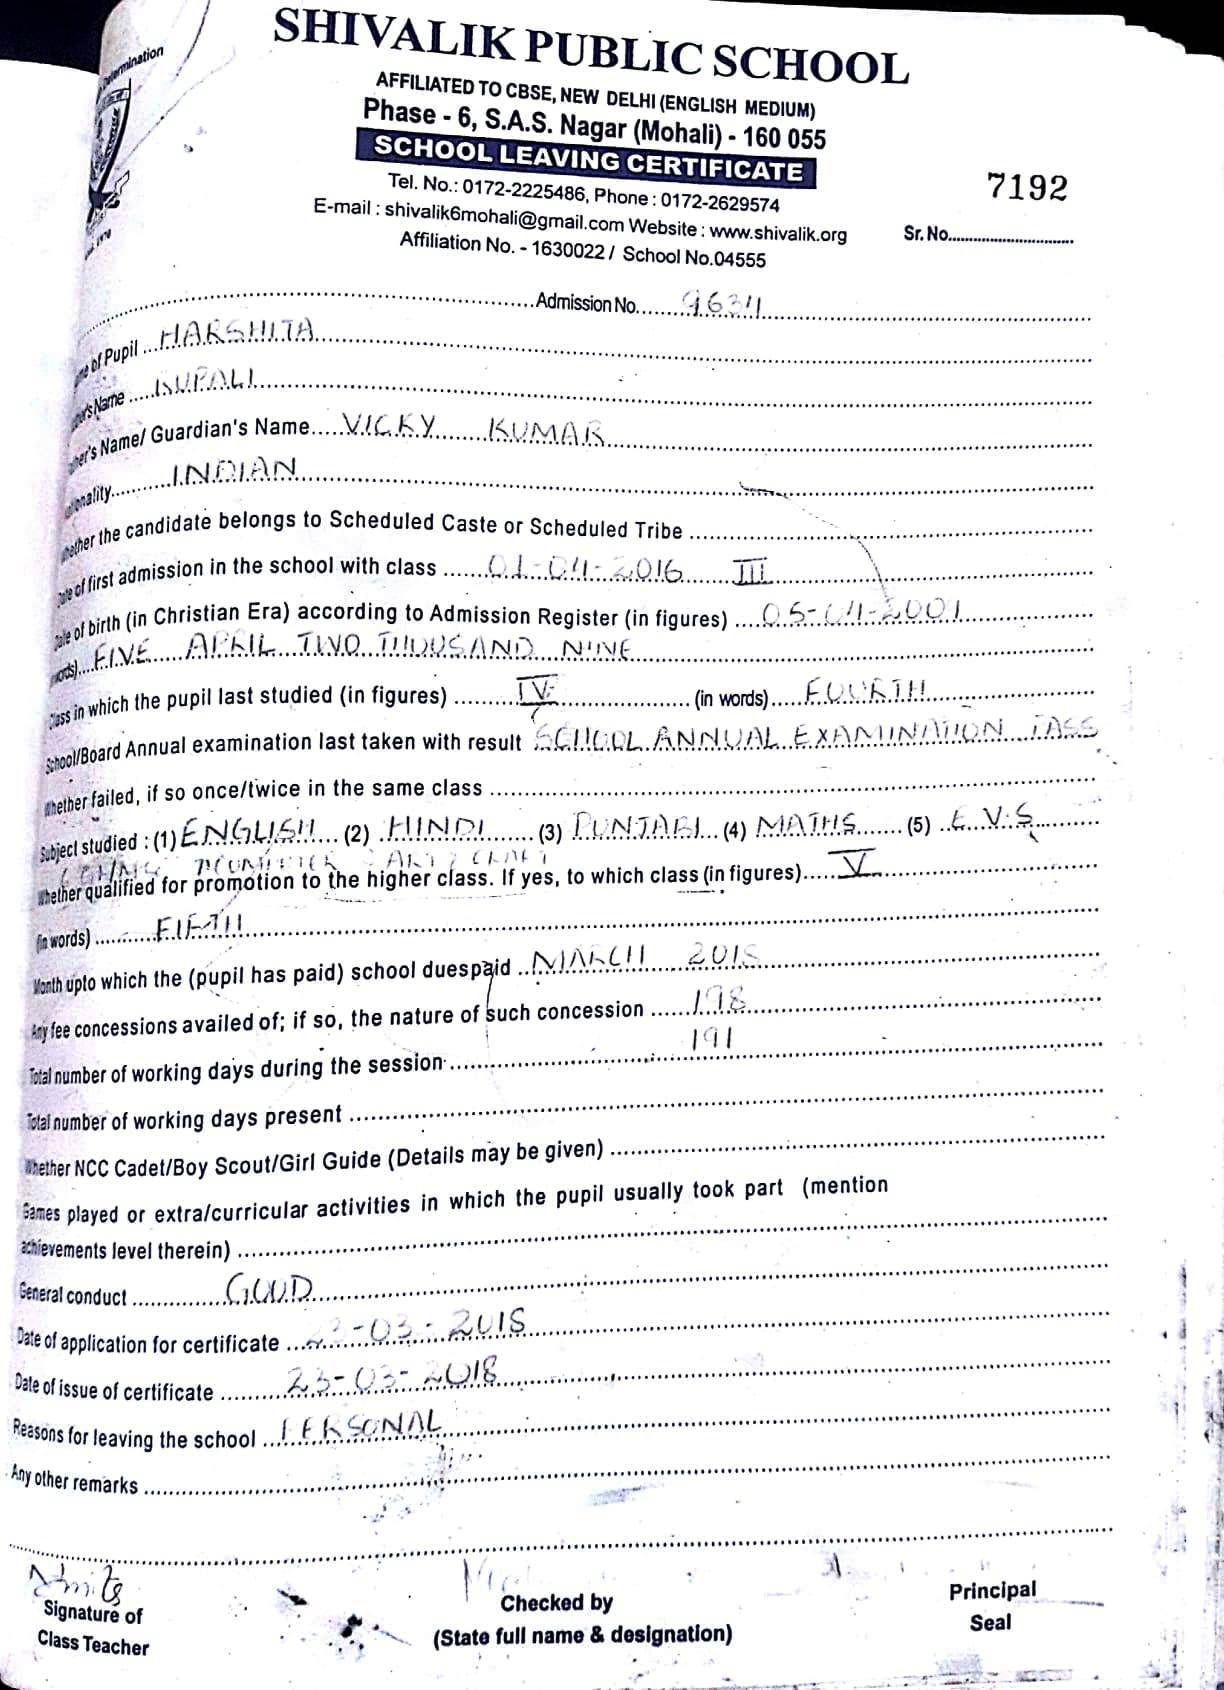 SHIVALIK PUBLIC SCHOOL
AFFILIATED TO CBSE, NEW DELHI (ENGLISH MEDIUM)
Phase - 6, S.A.S. Nagar (Mohali) - 160 055
SCHOOL LEAVING CERTIFICATE
7192
Tel. No.: 0172-2225486, Phone : 0172-2629574
E-mail : shivalik6mohali@gmail.com Website : www.shivalik.org
Sr. No.
Affiliation No. - 1630022 / School No.04555
Admission No. 9634
of Pupil HARSHITA
Name
Name/ Guardian's Name VICKY KUMAR
INDIAN
the candidate belongs to Scheduled Caste or Scheduled Tribe
of first admission in the school with class 01-04-2016 III
of birth (in Christian Era) according to Admission Register (in figures) 05-04-2009
FIVE APRIL TWO THOUSAND NINE
in which the pupil last studied (in figures) IV (in words) FOURTH
School/Board Annual examination last taken with result SCHOOL ANNUAL EXAMINATION PASS
Whether failed, if so once/twice in the same class
Subject studied : (1) ENGLISH (2) HINDI (3) PUNJABI (4) MATHS (5) E.V.S
ART & CRAFT
Whether qualified for promotion to the higher class. If yes, to which class (in figures) V
(in words) FIFTH
Month upto which the (pupil has paid) school duespaid MARCH 2018
Any fee concessions availed of; if so, the nature of such concession 198
191
Total number of working days during the session
Total number of working days present
Whether NCC Cadet/Boy Scout/Girl Guide (Details may be given)
Games played or extra/curricular activities in which the pupil usually took part (mention
achievements level therein)
General conduct GOOD
Date of application for certificate 23-03-2018
Date of issue of certificate 23-03-2018
Reasons for leaving the school PERSONAL
Any other remarks
Signature of
Class Teacher
Checked by
(State full name & designation)
Principal
Seal